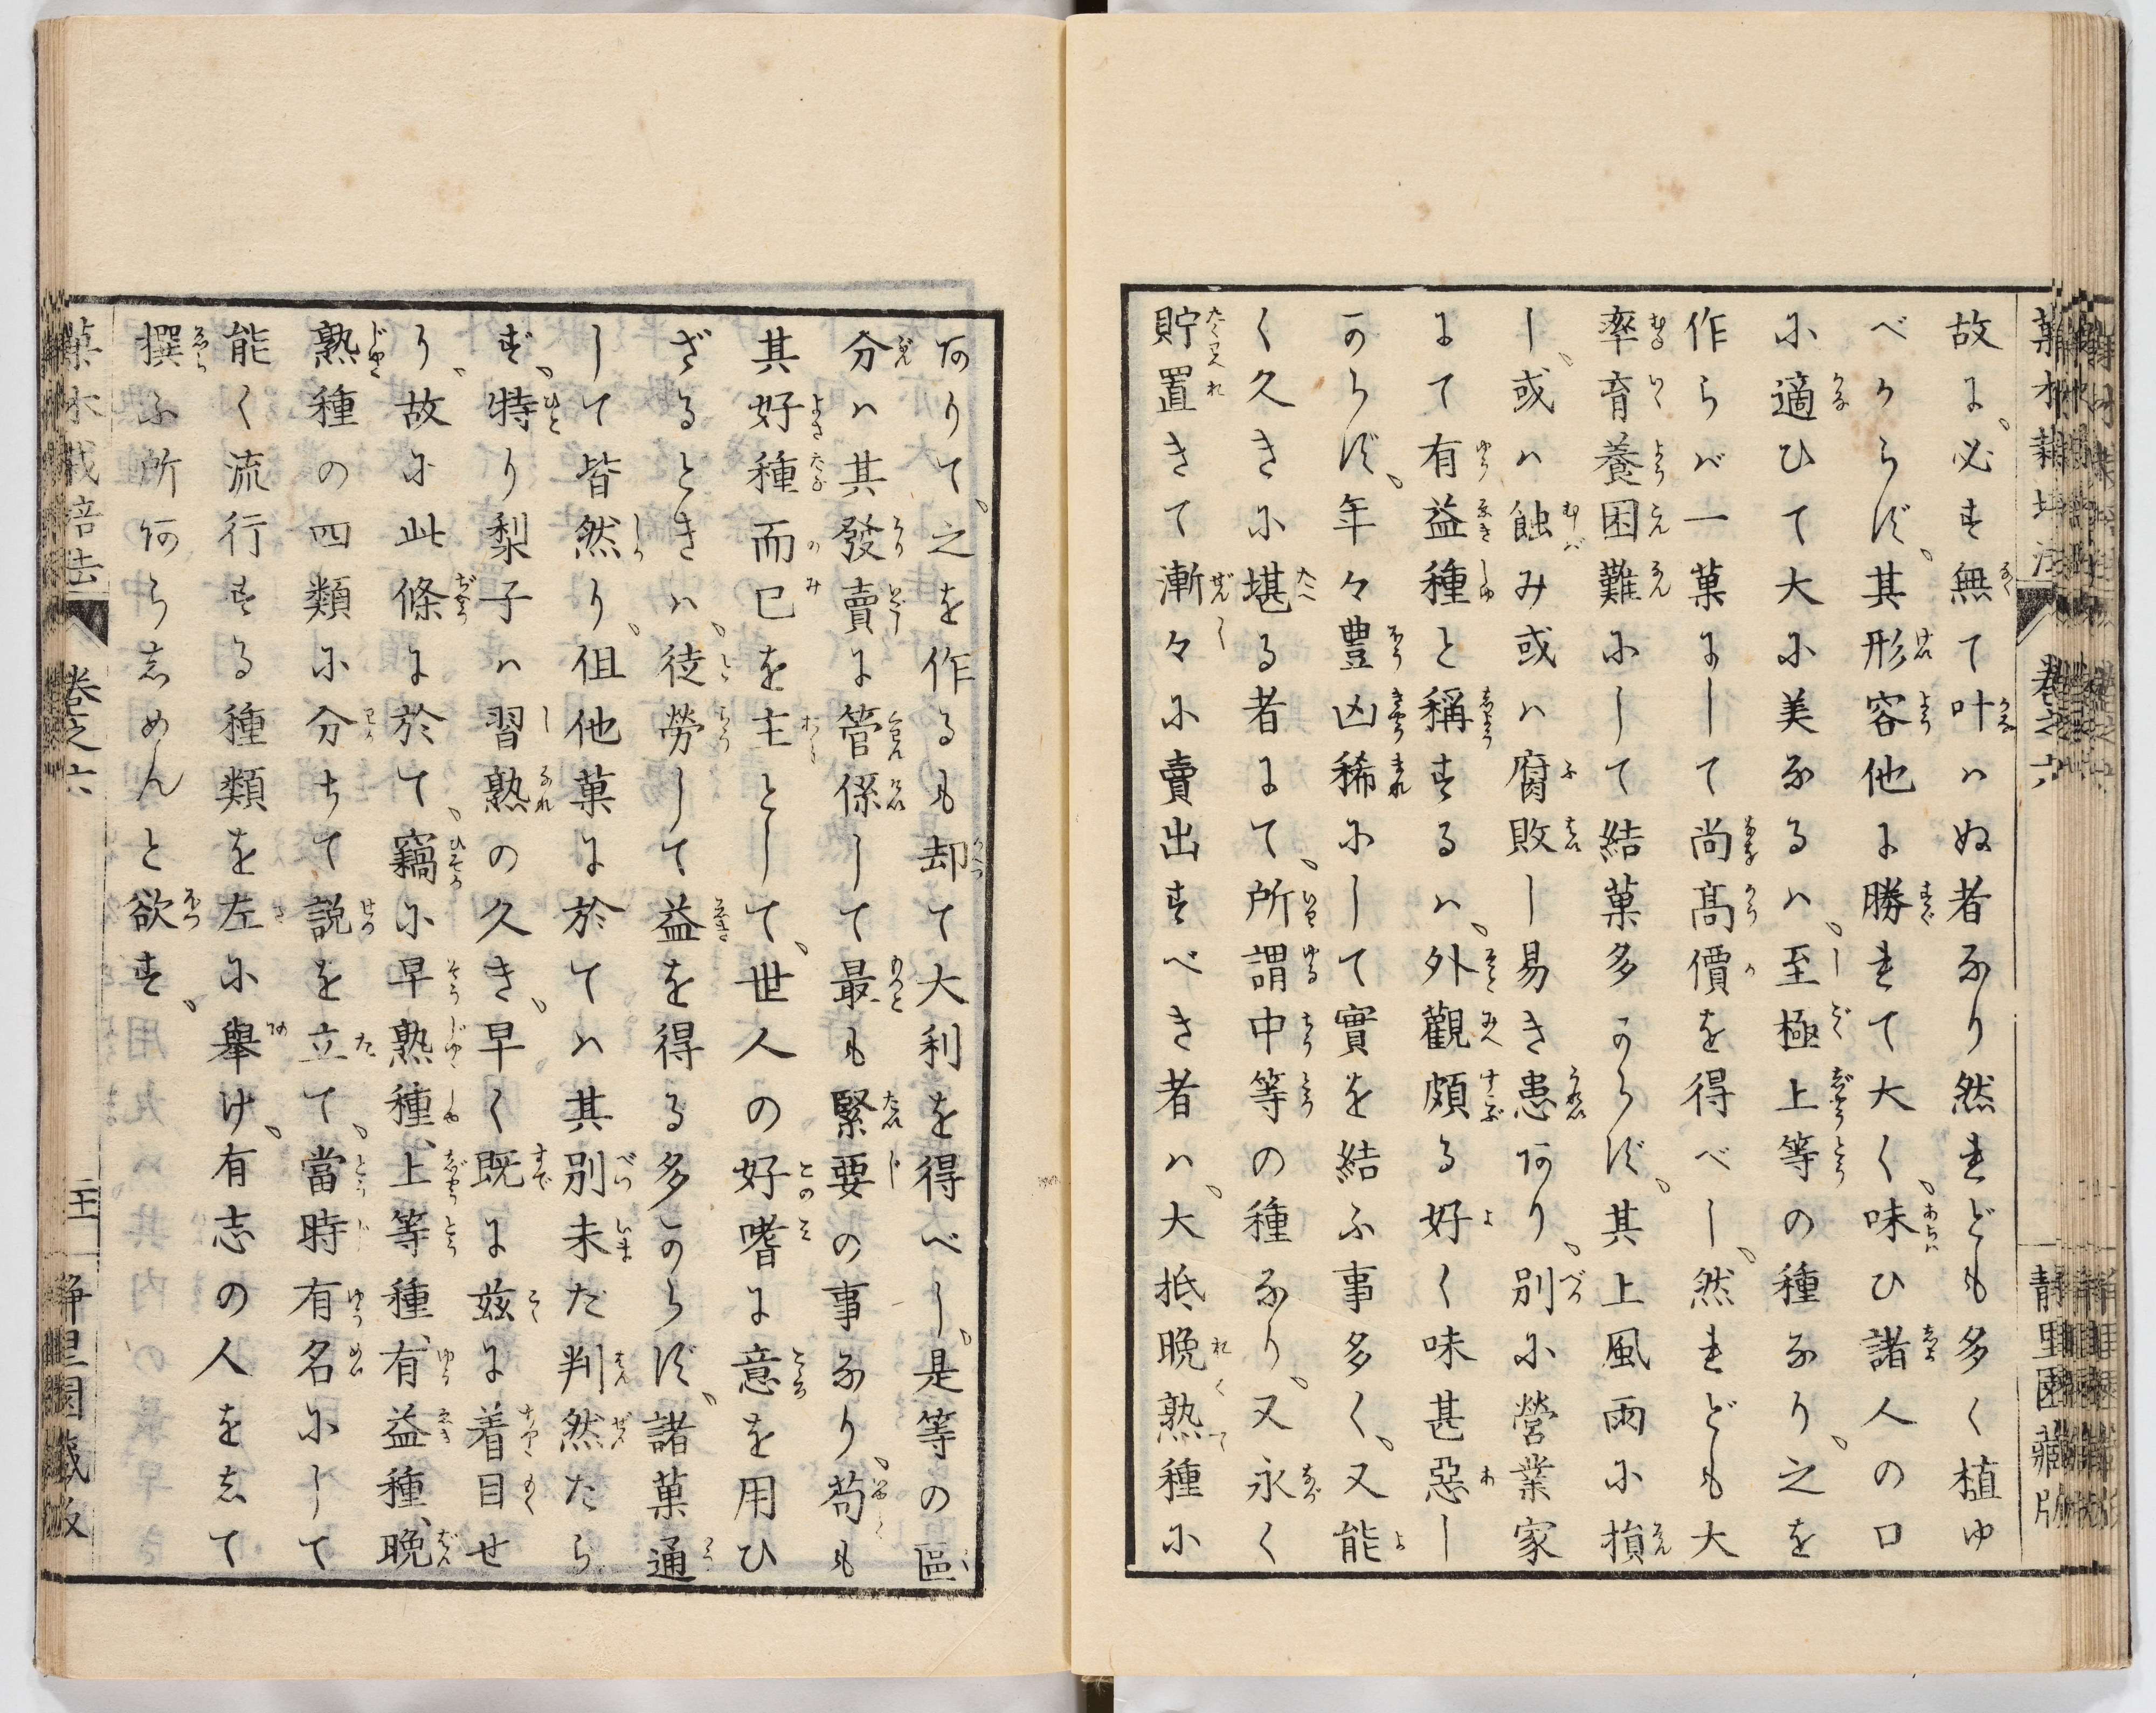 故に、必ず無て叶ハぬ者なり然れども多く植ゆ
べからず、其形容他に勝れて大く、味ひ諸人の口
に適ひて大に美なるハ、至極上等の種なり、之を
作らバ一菓にして尚高價を得べし、然れども大
率育養困難にして結菓多からず、其上風雨に損
し、或ハ蝕み或ハ腐敗し易き患あり、別に營業家
にて有益種と稱するハ、外觀頗る好く味甚惡し
からず、年々豊凶稀にして實を結ふ事多く、又能
く久きに堪る者にて、所謂中等の種なり、又永く
貯置きて漸々に賣出すべき者ハ、大抵晩熟種に
ありて、之を作るも却て大利を得べし、是等の區
分ハ其發賣に管係して最も緊要の事なり、苟も
其好種而已を主として、世人の好嗜に意を用ひ
ざるときハ、徒勞して益を得る多からず、諸菓通
して皆然り、但他菓に於てハ其別未だ判然たら
ず、特り梨子ハ習熟の久き、早く既に茲に着目せ
り、故に此條に於て、竊に早熟種、上等種、有益種、晩
熟種の四類に分ちて説を立て、當時有名にして
能く流行する種類を左に擧け、有志の人をして
撰ふ所あらしめんと欲す、
菓木栽培法 卷之六 静里園藏版